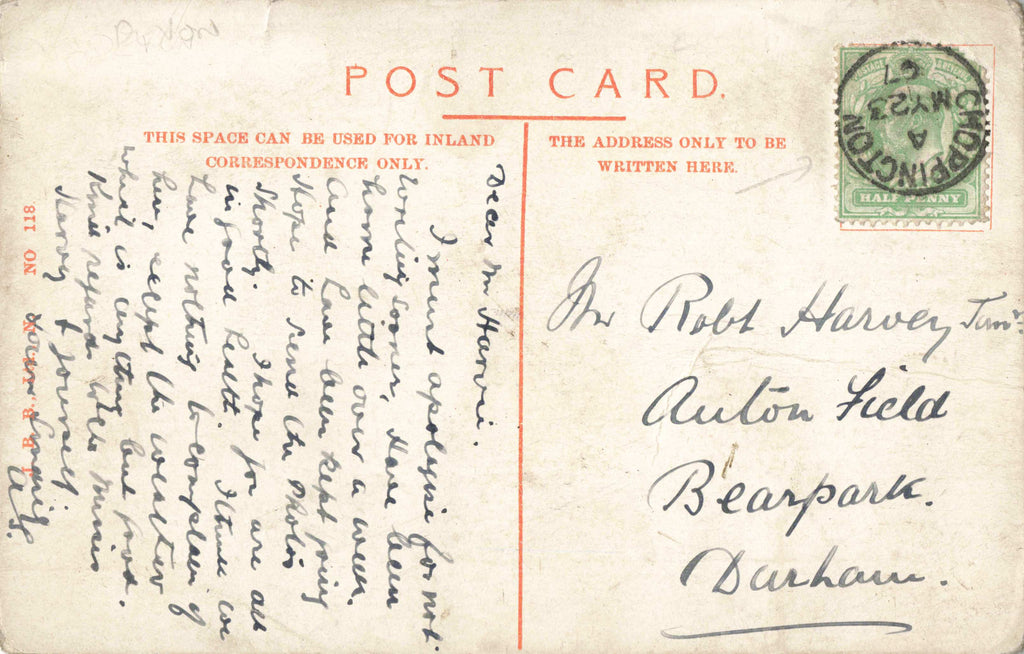 POST CARD.
THIS SPACE CAN BE USED FOR INLAND
CORRESPONDENCE ONLY.
THE ADDRESS ONLY TO BE
WRITTEN HERE.
CHOPPINGTON
A
MY 23
07
HALF PENNY
Mr Robt Harvey Junr
Auton Field
Bearpark.
Durham.
Dear Mr Harvie.
I must apologise for not
writing sooner, Have been
home little over a week.
And have been kept going
Hope to send the Photos
Shortly. I hope you are all
in good health. I think we
have nothing to complain of
here, except the weather
which is anything but good.
Kind regards to Mrs
Harvey & yourself
Yours Sincerely
NO 118